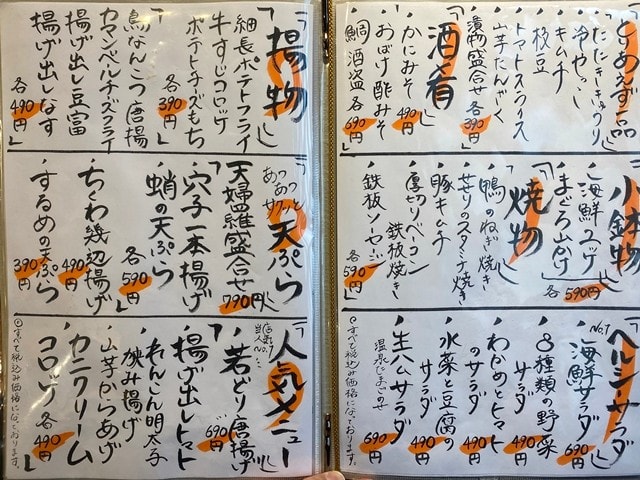 とりあえず一品
たたききゅうり
冷やっこ
キムチ
枝豆
トマトスライス
山芋たんざく
漬物盛合せ 各390円
酒肴
かにみそ 490円
おばけ酢みそ
鯛酒盗 各690円
小鉢物
海鮮ユッケ
まぐろ山かけ 各590円
焼物
鴨のねぎ焼き
せせりのスタミナ焼き
豚キムチ
厚切りベーコン鉄板焼き
鉄板ソーセージ 各590円
ヘルシーサラダ
No.1 海鮮サラダ 690円
8種類の野菜サラダ 490円
わかめとトマトのサラダ 490円
水菜と豆腐のサラダ 490円
生ハムサラダ 温泉たまごのせ 690円
◎すべて税込み価格になっております。
揚物
細長ポテトフライ
牛すじコロッケ
ポテトチーズもち 各390円
鳥なんこつ唐揚
カマンベールチーズフライ
揚げ出し豆富
揚げ出しなす 各490円
あつあつサクッと
天ぷら
天婦羅盛合せ 790円
穴子一本揚げ
蛸の天ぷら 各590円
ちくわ磯辺揚げ 490円
するめの天ぷら 390円
人気メニュー
当店人気No.1
若どり唐揚げ 690円
揚げ出しトマト
れんこん明太子挟み揚げ
山芋からあげ
カニクリームコロッケ 各490円
◎すべて税込み価格になっております。